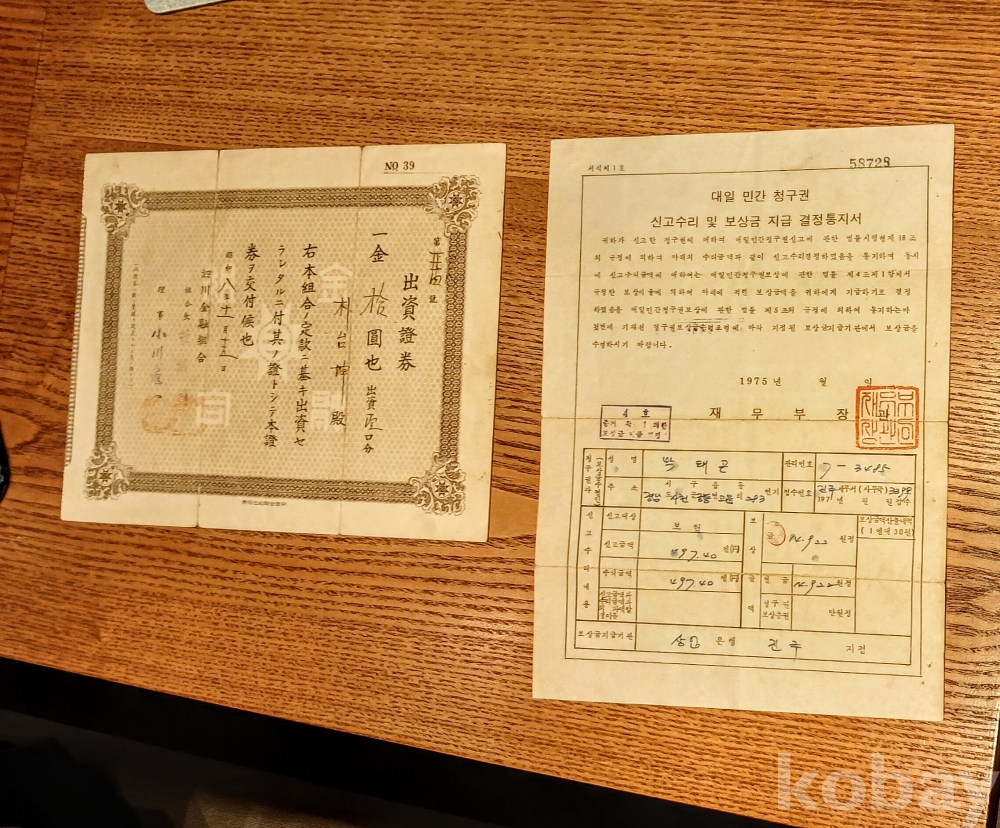 NO 39
出資證券
一金拾圓也 出資壹口分
朴台坤殿
右本組合ノ定款ニ基キ出資セ
ラレタルニ付其ノ證トシテ本證
券ヲ交付候也
昭和八年十一月
泗川金融組合
組合長
理事 小川
서식제1호
58728
대일 민간 청구권
신고수리 및 보상금 지급 결정통지서
귀하가 신고한 청구권에 대하여 대일민간청구권신고에 관한 법률시행령제18조
의 규정에 의하여 아래의 수리금액과 같이 신고수리결정하였음을 통지하며 동시
에 신고수리금액에 대하여는 대일민간청구권보상에 관한 법률 제4조제1항에서
규정한 보상비율에 의하여 아래에 적힌 보상금액을 귀하에게 지급하기로 결정
하였음을 대일민간청구권보상에 관한 법률 제5조의 규정에 의하여 통지하는바
수령하시기 바랍니다.
1975년 월 일
재무부장
4호
성명 박태곤 관리번호 7-3485
주소 시구읍동 경남 사천 293 번지 접수번호
신고대상 보상
신고금액 497.40 엔(円) 14,922 원정
보상금액산출내역
(1엔대30원)
수리금액 497.40 엔(円) 현금 14,922 원정
청구권
보상증권 만원정
보상금지급기관 상업 은행 진주 지점
kobay